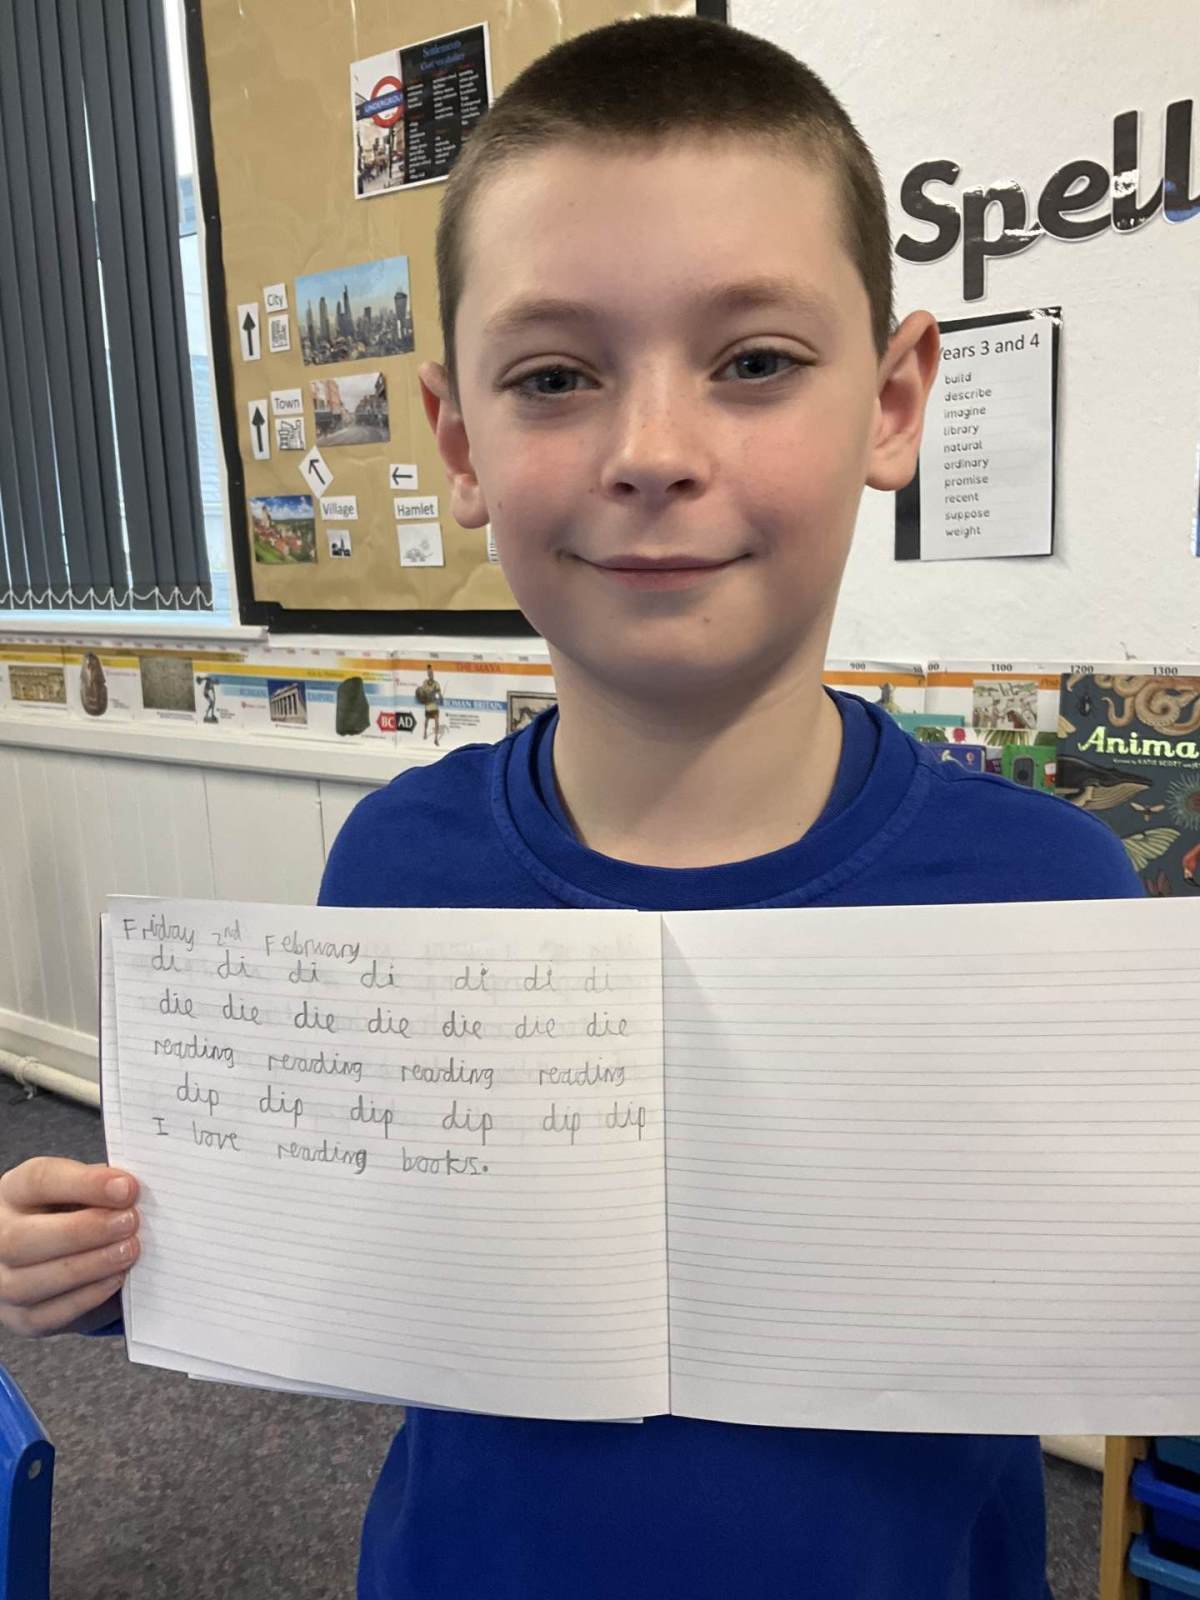 Settlements
UNDERGROUND
City
Town
Village
Hamlet
Spell
Years 3 and 4
build
describe
imagine
library
natural
ordinary
promise
recent
suppose
weight
THE MAYA
ROMAN BRITAIN
EMPIRE
BC AD
900
1100
1200
1300
Anima
Friday 2nd February
di di di di di di di
die die die die die die die
reading reading reading reading
dip dip dip dip dip dip
I love reading books.